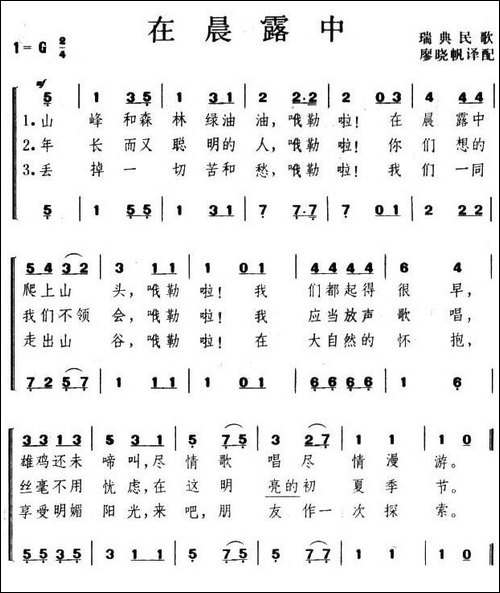 在晨露中
1=G 2/4
瑞典民歌
廖晓帆译配
mf
5 | 1 35 | 5 1 31 | 2 2·2 | 2 03 | 4 44 |
1.山 峰和森 林绿油 油，哦勒 啦！在 晨露中
2.年 长而又 聪明的 人，哦勒 啦！你 们想的
3.丢 掉一 切苦和 愁，哦勒 啦！我 们一同
5 | 1 55 | 5 1 31 | 7 7·7 | 7 01 | 2 22 |
54 32 | 3 11 | 1 01 | 44 44 | 6 4 |
爬上山 头，哦勒 啦！我 们都起得 很早，
我们不领 会，哦勒 啦！我 应当放声 歌唱，
走出山 谷，哦勒 啦！在 大自然的 怀抱，
72 57 | 1 11 | 1 01 | 66 66 | 1 6 |
33 13 | 5 31 | 5 75 | 3 27 | 1 1 | 1 0 |
雄鸡还未 啼叫，尽 情歌 唱尽 情漫 游。
丝毫不用 忧虑，在 这明 亮的初 夏季 节。
享受明媚 阳光，来 吧，朋 友作一 次探 索。
55 35 | 3 11 | 5 75 | 5 55 | 1 1 | 1 0 |